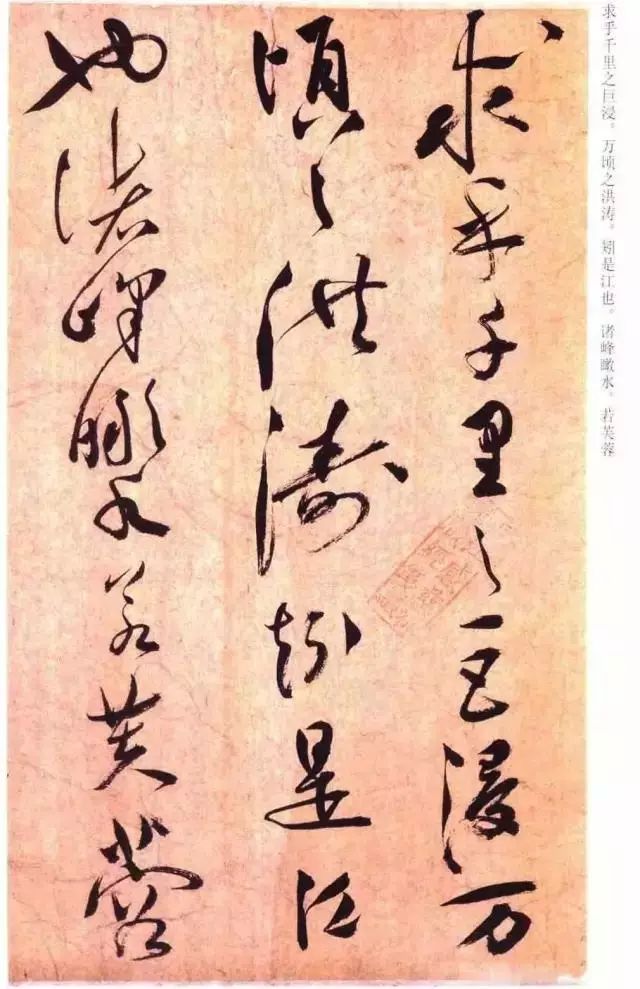 求乎千里之巨浸。万顷之洪涛。矧是江也。诸峰瞰水。若芙蓉
求乎千里之巨浸万
頃之洪濤矧是江
也諸峰瞰水若芙蓉